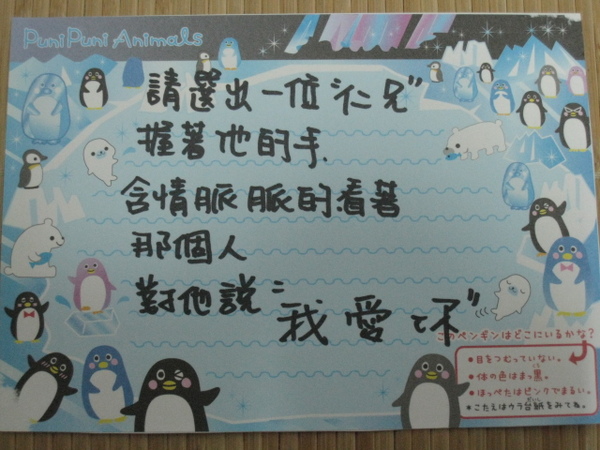 Puni Puni Animals
請選出一位"仁兄"
握著他的手
含情脈脈的看著
那個人
對他說："我愛你"
このペンギンはどこにいるかな？
•目をつむっていない。
•体の色はまっ黒。
•ほっぺたはピンクでまるい。
•こたえはウラ台紙をみてね。